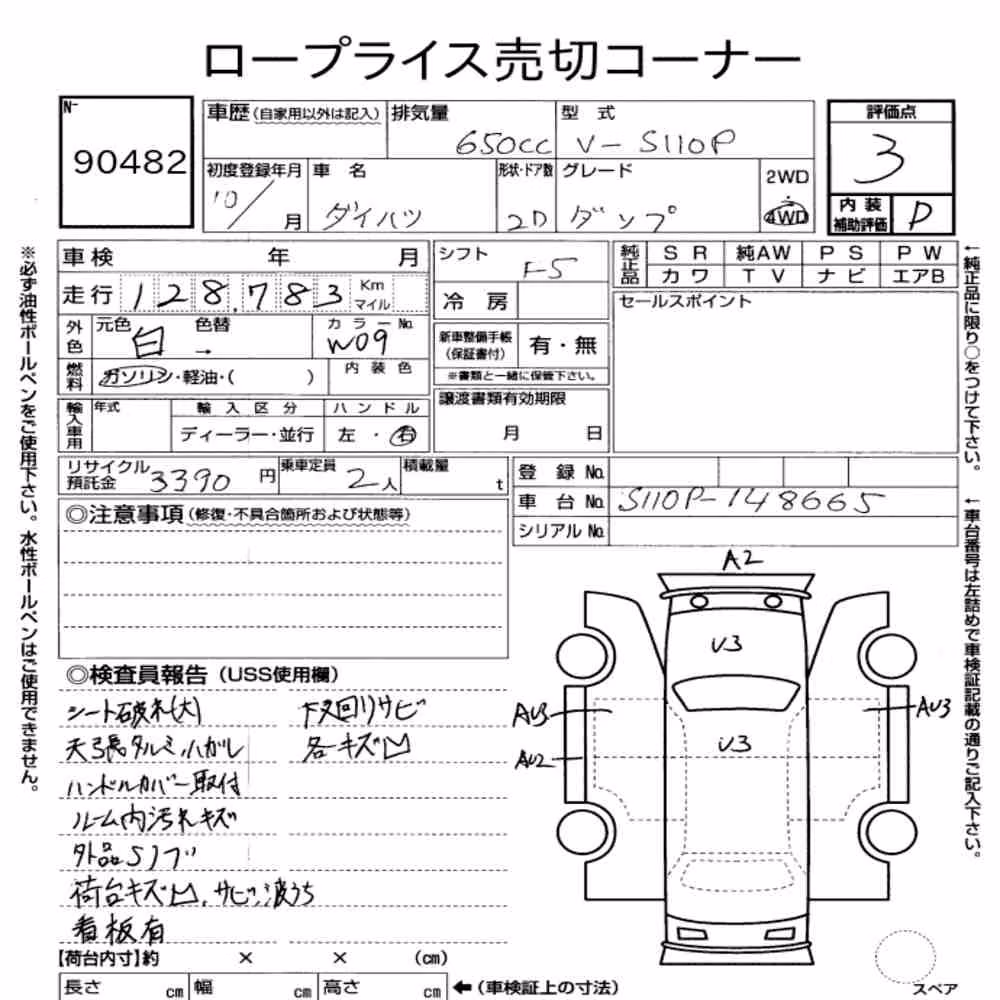 ロープライス売切コーナー
N-
90482
車歴(自家用以外は記入) 排気量 650cc 型式 V-S110P
初度登録年月 10/ 月 車名 ダイハツ 形状・ドア数 2D グレード ダンプ 2WD・4WD
評価点 3
内装補助評価 D
車検 年 月
走行 128,783 Km マイル
外色 元色 白 色替 → カラーNo. W09
燃料 ガソリン・軽油・( ) 内装色
輸入車用 年式 輸入区分 ディーラー・並行 ハンドル 左・右
シフト F5
冷房
新車整備手帳(保証書付) 有・無
※書類と一緒に保管下さい。
譲渡書類有効期限
月 日
純正品 SR 純AW PS PW
カワ TV ナビ エアB
セールスポイント
リサイクル預託金 3390円 乗車定員 2人 積載量 t
登録No.
車台No. S110P-148665
シリアルNo.
◎注意事項(修復・不具合箇所および状態等)
◎検査員報告(USS使用欄)
シート破れ(大) 下叉回リサビ
天張タルミ、ハガレ 各キズ凹
ハンドルカバー取付
ルーム内汚れキズ
外品Sノブ
荷台キズ凹、サビ、波うち
看板有
【荷台内寸】約 × × (cm)
長さ cm 幅 cm 高さ cm ←(車検証上の寸法)
A2
U3
U3
AU3
AU2
AU3
スペア
※必ず油性ボールペンをご使用下さい。水性ボールペンはご使用できません。
←純正品に限り○をつけて下さい。
←車台番号は左詰めで車検証記載の通りご記入下さい。